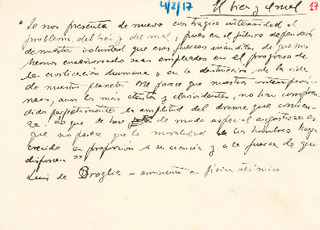 4/2/17 El bien y el mal 17
"Se nos presenta de nuevo con trágica intensidad el
problema del bien y del mal, pues en el futuro dependerá
de nuestra voluntad que esas fuerzas inauditas de que nos
hemos enseñoreado sean empleadas en el progreso de
la civilización humana o en la destrucción de la vida
de nuestro planeta. Me parece que nuestros contemporá-
neos, aun los más atentos y clarividentes, no han compren-
dido perfectamente la amplitud del drama que comien-
za. Lo que le hace de modo especial angustioso es
que no parece que la moralidad de los hombres haya
crecido en proporción a su ciencia y a la fuerza de que
disponen"
Luis de Broglie - eminencia en física atómica.